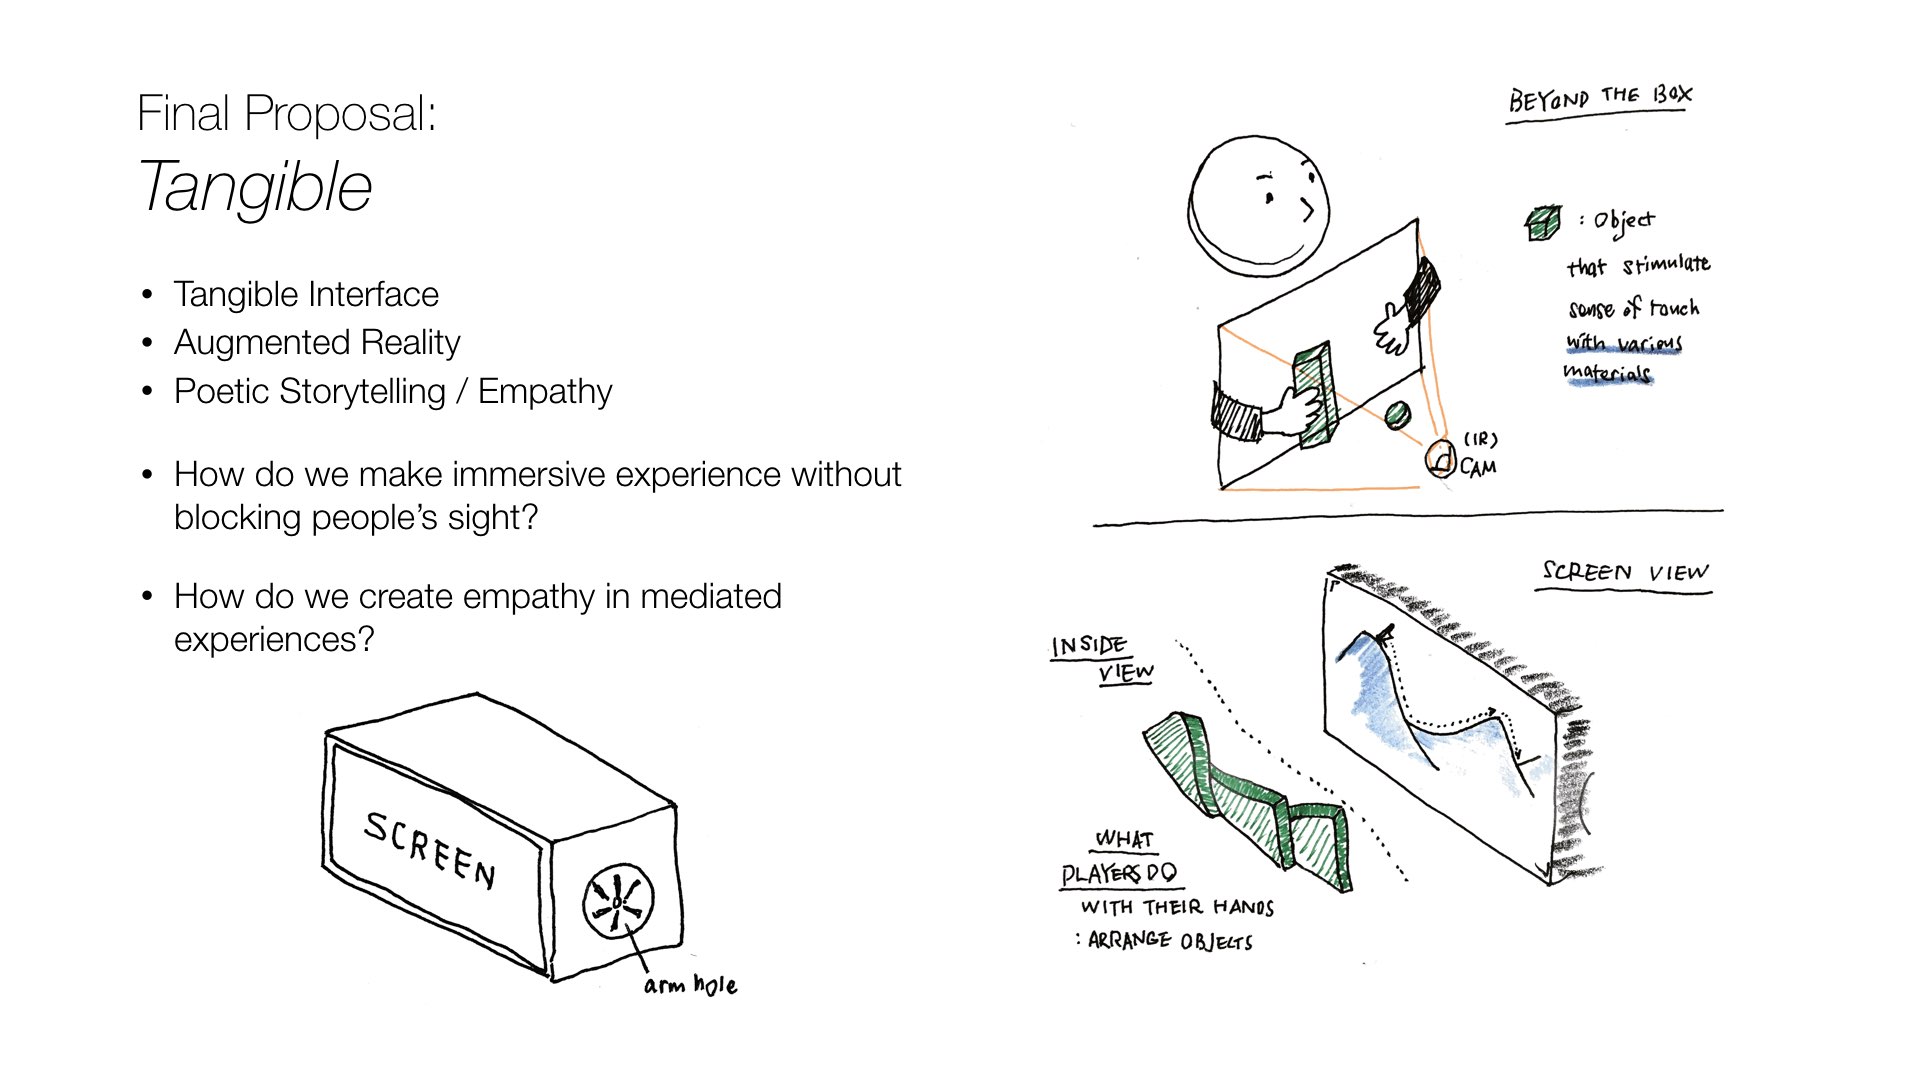 Final Proposal:
Tangible
• Tangible Interface
• Augmented Reality
• Poetic Storytelling / Empathy
• How do we make immersive experience without
blocking people’s sight?
• How do we create empathy in mediated
experiences?
SCREEN
arm hole
BEYOND THE BOX
: Object
that stimulate
sense of touch
with various
materials
(IR)
CAM
SCREEN VIEW
INSIDE
VIEW
WHAT
PLAYERS DO
WITH THEIR HANDS
: ARRANGE OBJECTS